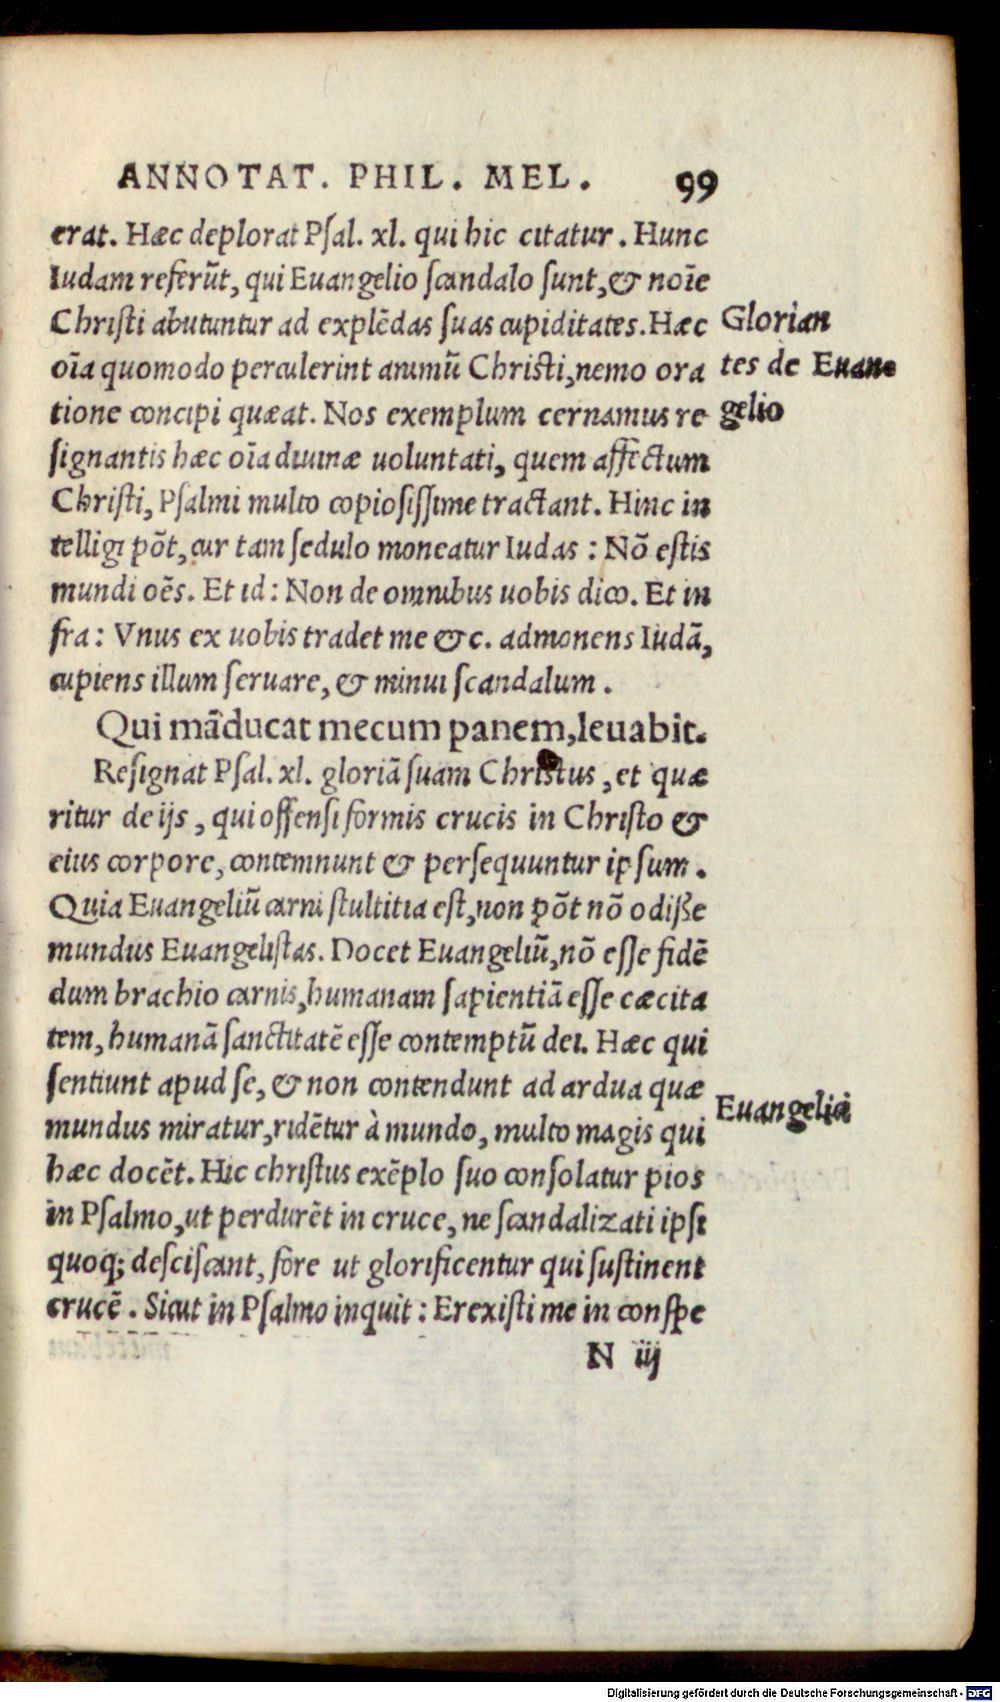 ANNOTAT. PHIL. MEL. 99
erat. Hæc deplorat Pſal. xl. qui hic citatur. Hunc
Iudam referũt, qui Euangelio ſcandalo ſunt, & noĩe
Chriſti abutuntur ad explẽdas ſuas cupiditates. Hæc
oĩa quomodo perculerint animũ Chriſti, nemo ora
tione concipi quæat. Nos exemplum cernamus re
ſignantis hæc oĩa diuinæ uoluntati, quem affectum
Chriſti, Pſalmi multo copioſiſſime tractant. Hinc in
telligi põt, cur tam ſedulo moneatur Iudas: Nõ eſtis
mundi oẽs. Et id: Non de omnibus uobis dico. Et in
fra: Vnus ex uobis tradet me &c. admonens Iudã,
cupiens illum ſeruare, & minui ſcandalum.
Qui mãducat mecum panem, leuabit.
Reſignat Pſal. xl. gloriã ſuam Chriſtus, et quæ
ritur de ijs, qui offenſi formis crucis in Chriſto &
eius corpore, contemnunt & perſequuntur ipſum.
Quia Euangeliũ carni ſtultitia eſt, non põt nõ odiſſe
mundus Euangeliſtas. Docet Euangeliũ, nõ eſſe fidẽ
dum brachio carnis, humanam ſapientiã eſſe cæcita
tem, humanã ſanctitatẽ eſſe contemptũ dei. Hæc qui
ſentiunt apud ſe, & non contendunt ad ardua quæ
mundus miratur, ridẽtur à mundo, multo magis qui
hæc docẽt. Hic chriſtus exẽplo ſuo conſolatur pios
in Pſalmo, ut perdurẽt in cruce, ne ſcandalizati ipſi
quoq; deſciſcant, fore ut glorificentur qui ſuſtinent
crucẽ. Sicut in Pſalmo inquit: Erexiſti me in conſpe
N iij
Glorian
tes de Euan
gelio
Euangelici
Digitalisierung gefördert durch die Deutsche Forschungsgemeinschaft - DFG